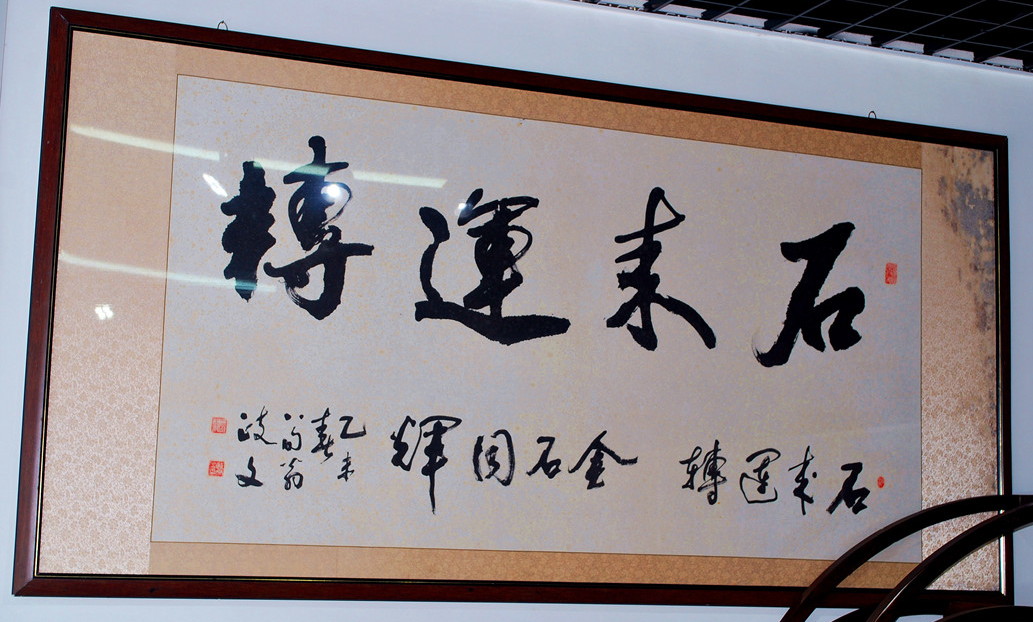 石来運轉
石来運轉
金石同輝
乙未
春
政文